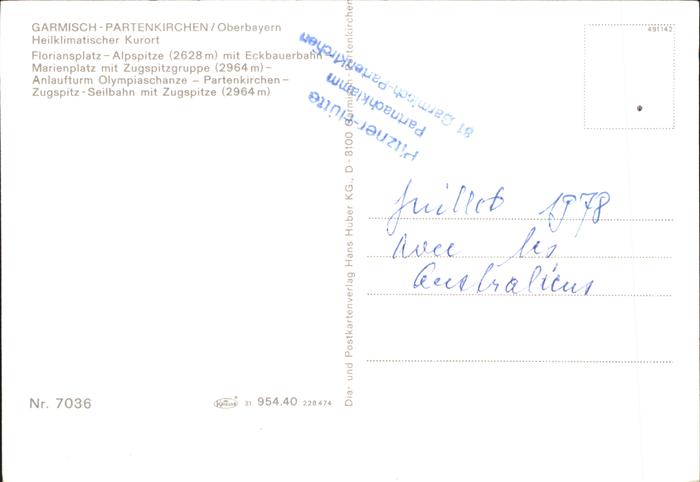 GARMISCH - PARTENKIRCHEN / Oberbayern
Heilklimatischer Kurort
Floriansplatz – Alpspitze (2628 m) mit Eckbauerbahn
Marienplatz mit Zugspitzgruppe (2964 m) –
Anlaufturm Olympiaschanze – Partenkirchen –
Zugspitz-Seilbahn mit Zugspitze (2964 m)
Pitzner-Hütte
Partnachklamm
81 Garmisch-Partenkirchen
491142
Dia- und Postkartenverlag Hans Huber KG., D - 8100 Garmisch - Partenkirchen
juillet 1978
avec les
Australiens
Nr. 7036
31 954.40 228474